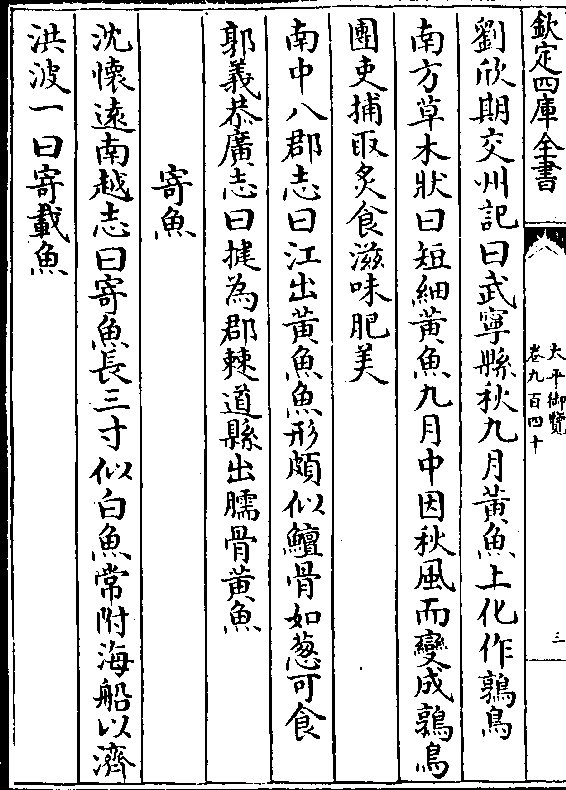 欽定四庫全書
太平御覽
卷九百四十
三
劉欣期交州記曰武寧縣秋九月黃魚上化作鶉鳥
南方草木狀曰短細黃魚九月中因秋風而變成鶉鳥
團吏捕取炙食滋味肥美
南中八郡志曰江出黃魚魚形頗似鱣骨如葱可食
郭義恭廣志曰揵為郡僰道縣出臑骨黃魚
寄魚
沈懷遠南越志曰寄魚長三寸似白魚常附海船以濟
洪波一曰寄載魚